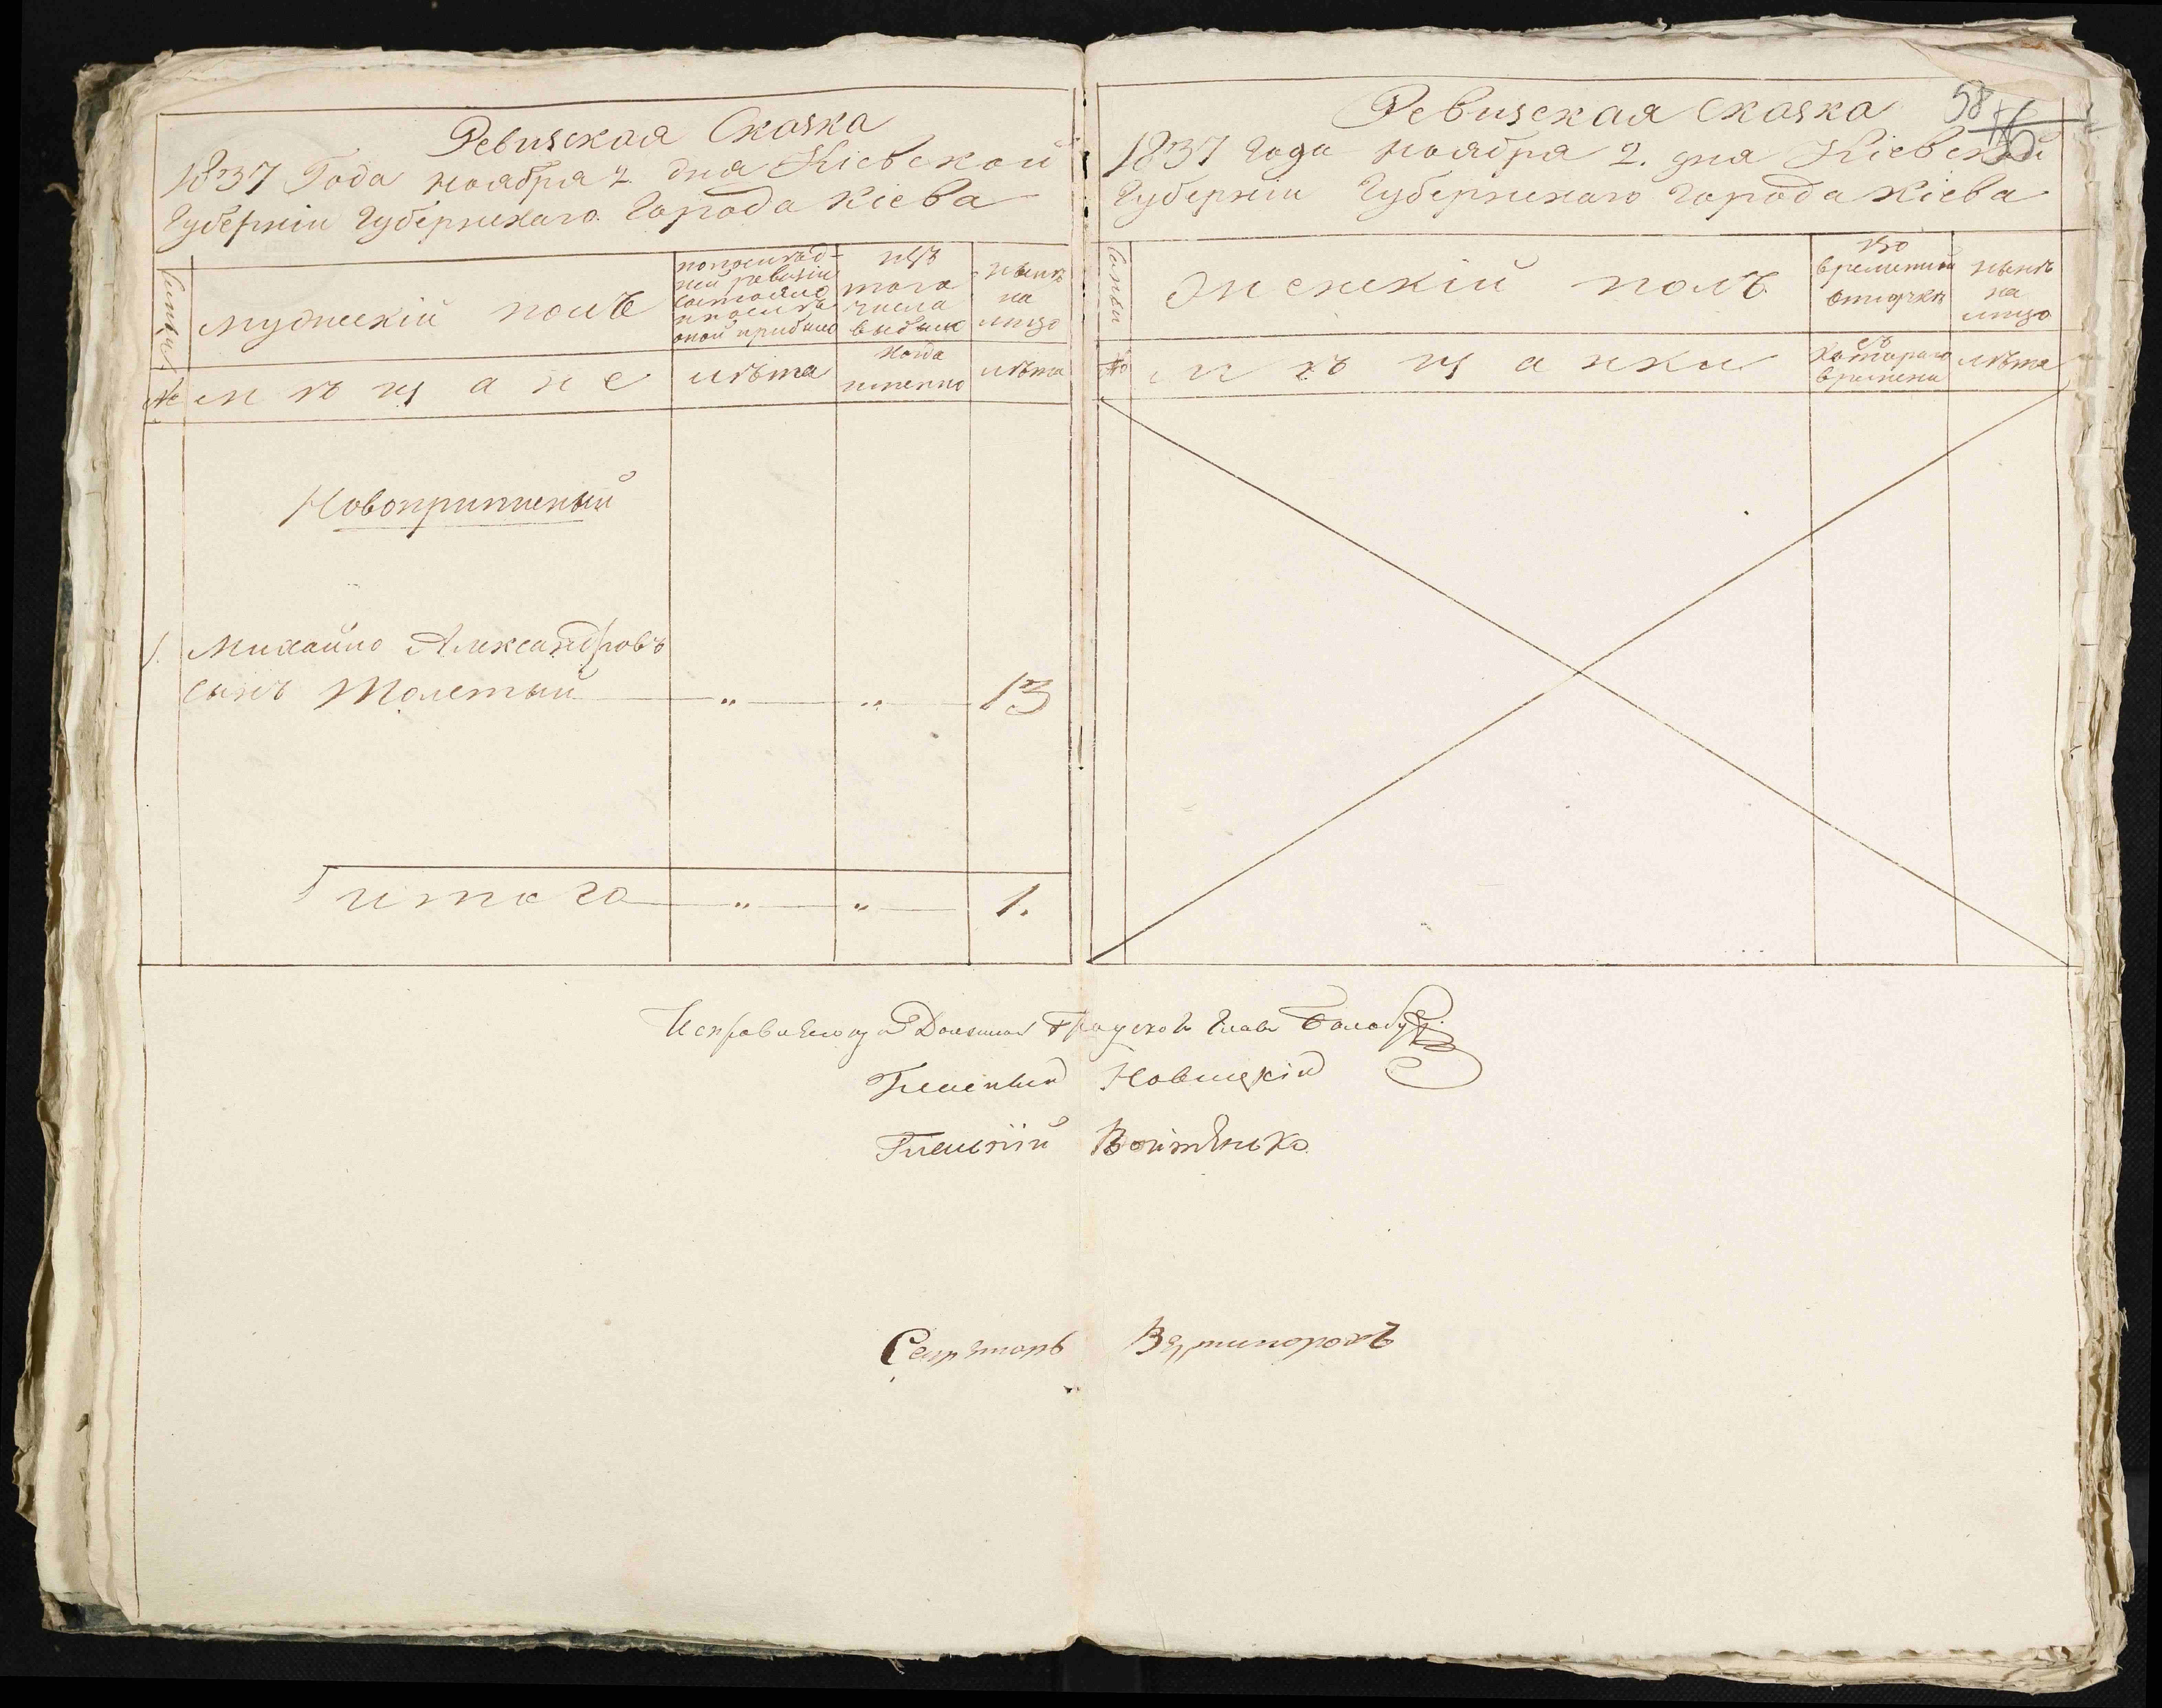 Ревизская Сказка
1837 Года ноября 2 дня Кіевской
Губерніи Губернскаго Города Кіева
Семьи
мужескій полъ
попослѣд-
ней ревизіи
состояло
и послѣ
оной прибыло
изъ
того
числа
выбыло
нынѣ
на
лицо
№
мѣщане
лѣта
когда
именно
лѣта
Новоприписный
1. Михайло Александровъ
сынъ Толстый — " — " — 13
итого — " — " — 1.
58
Ревизская Сказка
1837 года ноября 2. дня Кіевской
Губерніи Губернскаго города Кіева
Семьи
Женскій полъ
Во
временной
отлучкѣ
нынѣ
на
лицо
№
мѣщанки
съ
котораго
времени
лѣта
Градской Главы
Гласный Новицкій
Гласный Войтенко
Секретарь